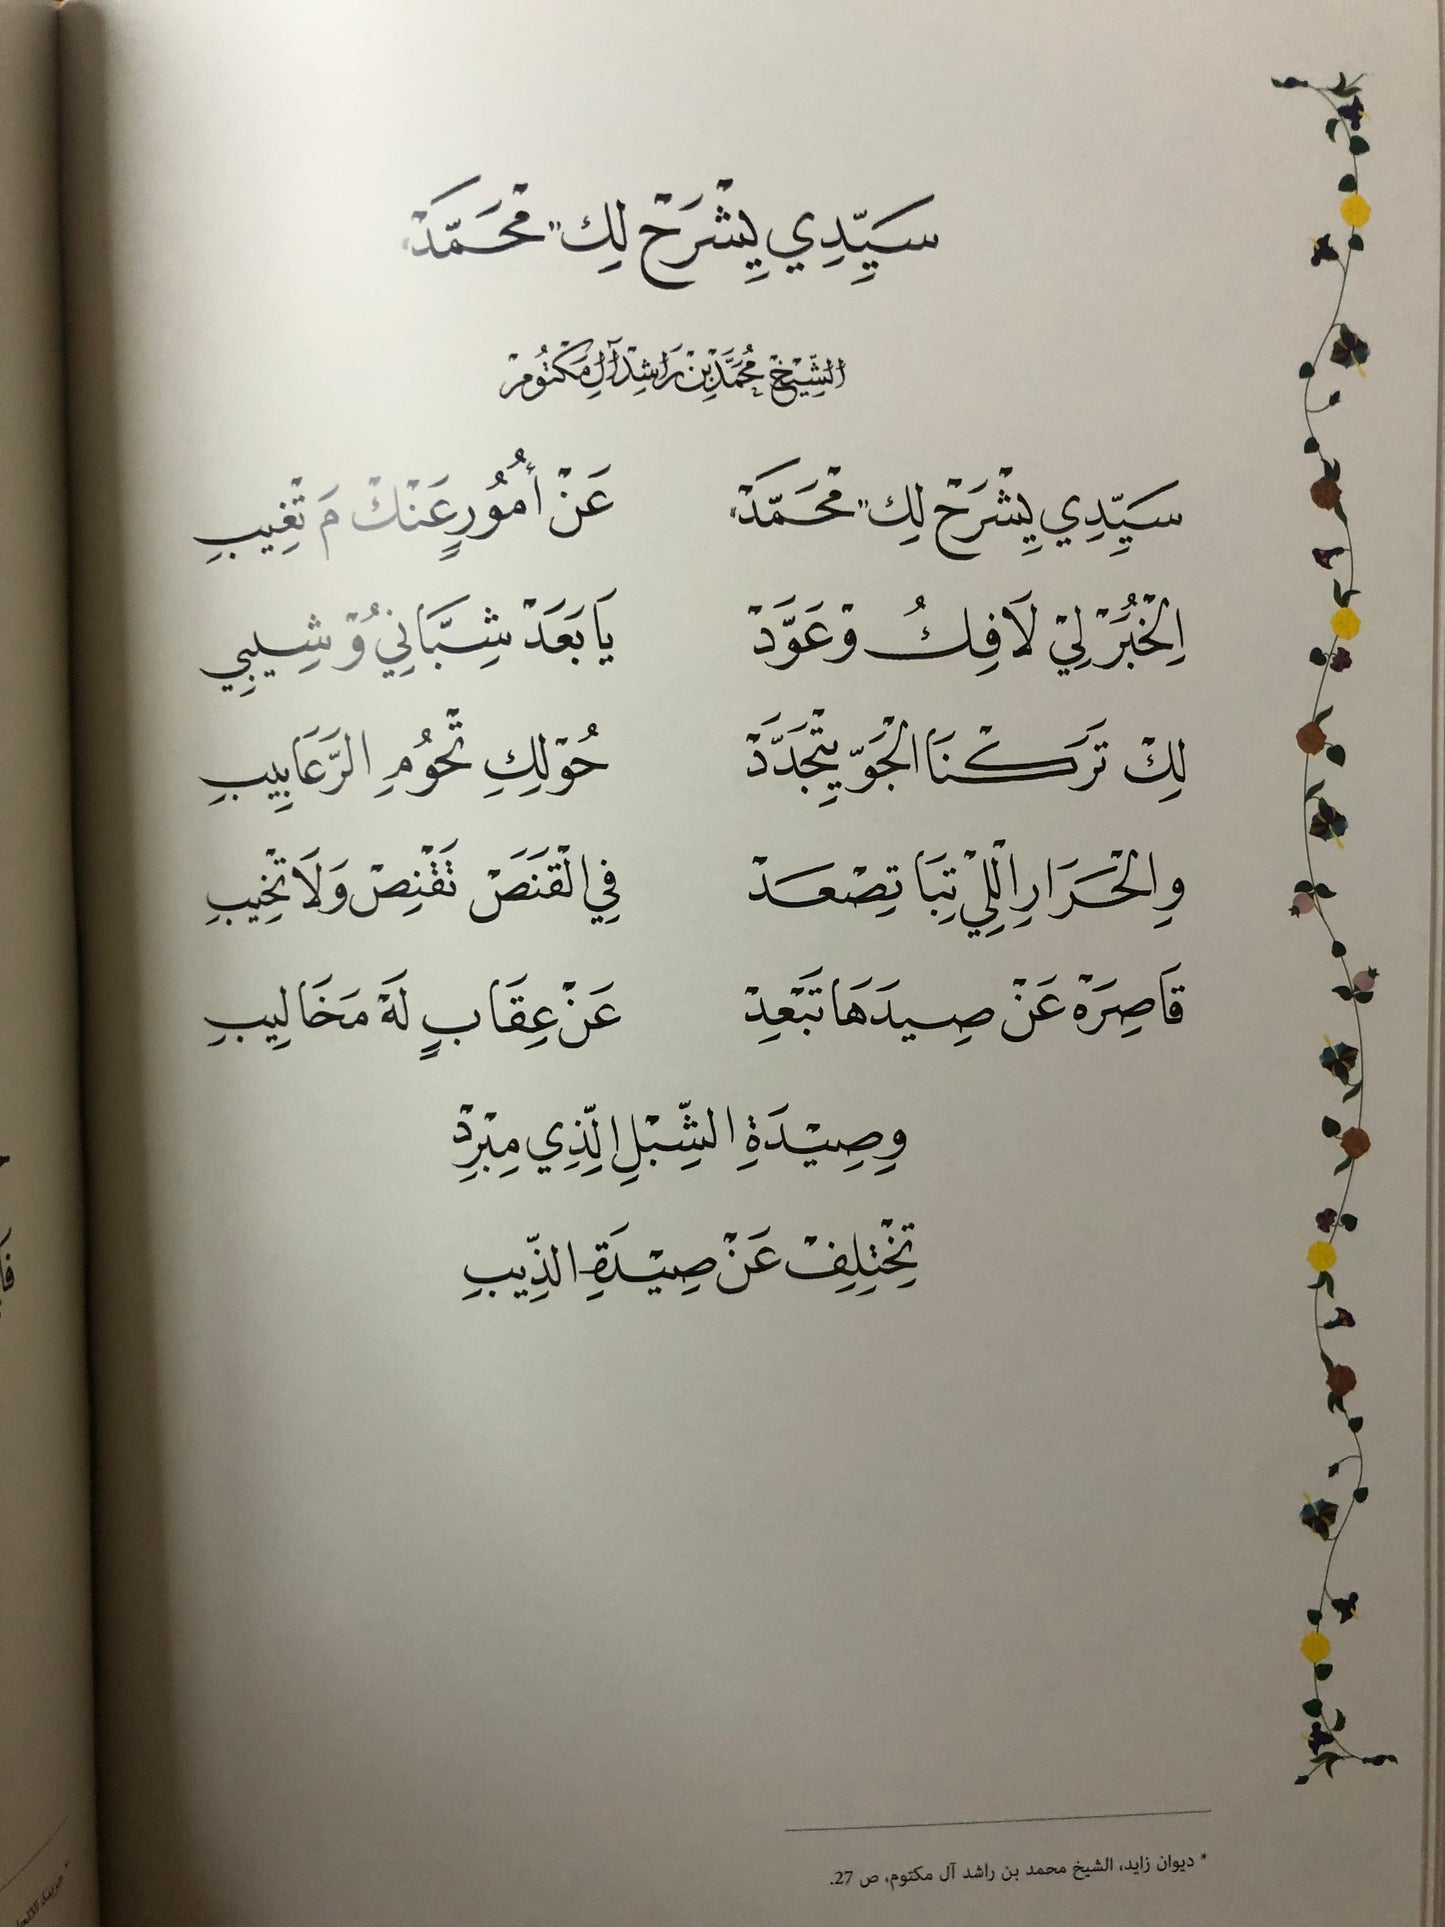 سَيِّدِي يِشْرَحْ لِك "مْحَمَّدْ"
الشَّيْخ مُحَمَّد بْن رَاشِدْ آل مَكْتُومْ
سَيِّدِي يِشْرَحْ لِك "مْحَمَّدْ" عَنْ أُمُورٍ عَنْكْ مَ تْغِيبِ
اِلْخَبَرْ لِيْ لَافِكُ وْعَوَّدْ يَا بَعَدْ شِبَّانِيُ وْشِيبِي
لِكْ تَرَكْنَا الْجَوّ يِتْجَدَّدْ حُوْلِكِ تْحُومِ الرَّعَابِيبِ
وِالْحَرَارِ اْللِّيْ تِبَا تِصْعَدْ فِي الْقَنَصْ تَقْنِصْ وَلَا تْخِيبِ
قَاصِرَهْ عَنْ صِيدَهَا تَبْعِدْ عَنْ عِقَابٍ لَهْ مَخَالِيبِ
وِصِيْدَةِ الشِّبْلِ الِّذِي مِبْرِدْ
تَخْتِلِفْ عَنْ صِيْدَةِ الذِّيبِ
* ديوان زايد، الشيخ محمد بن راشد آل مكتوم، ص 27.